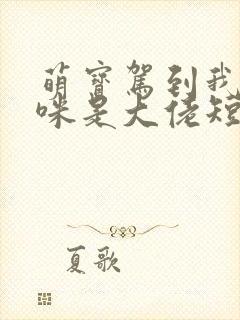 萌宝驾到我
咪是大佬短
夏歌